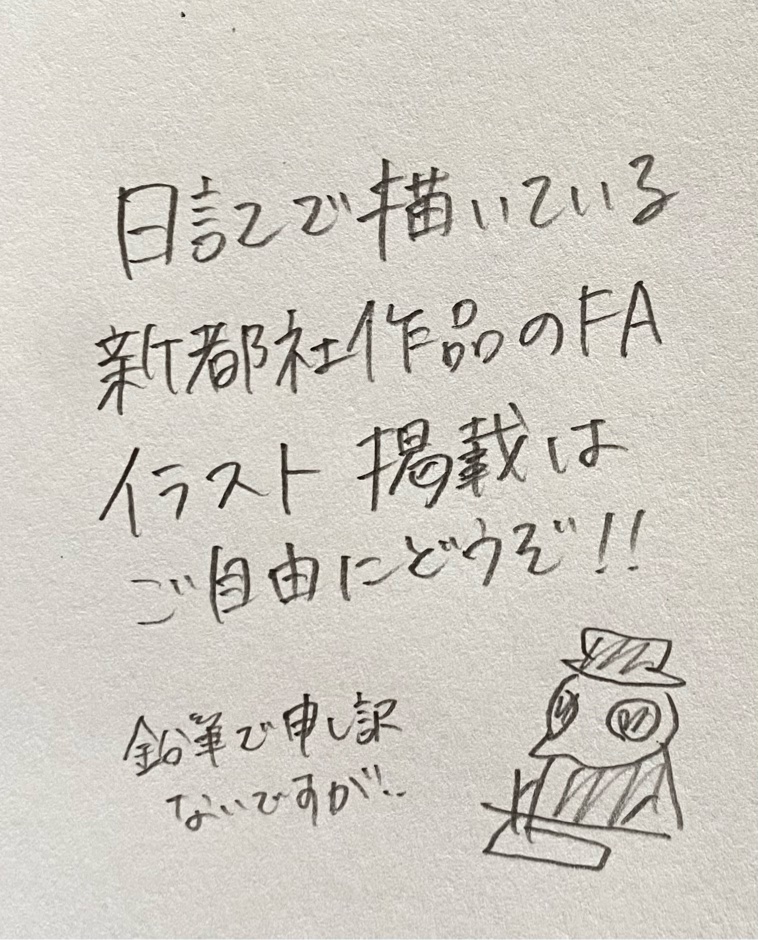 日記で描いている
新都社作品のFA
イラスト 掲載は
ご自由にどうぞ!!
鉛筆で申し訳
ないですが…